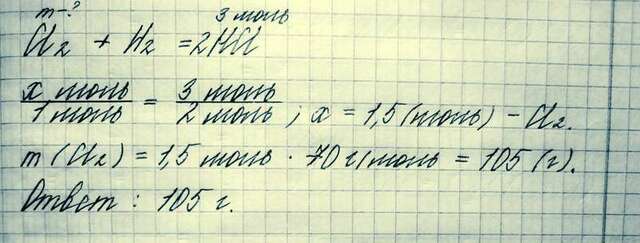 m-? 3 моль
Cl2 + H2 = 2HCl
x моль / 1 моль = 3 моль / 2 моль ; x = 1,5 (моль) - Cl2.
m (Cl2) = 1,5 моль · 70 г/моль = 105 (г).
Ответ : 105 г.